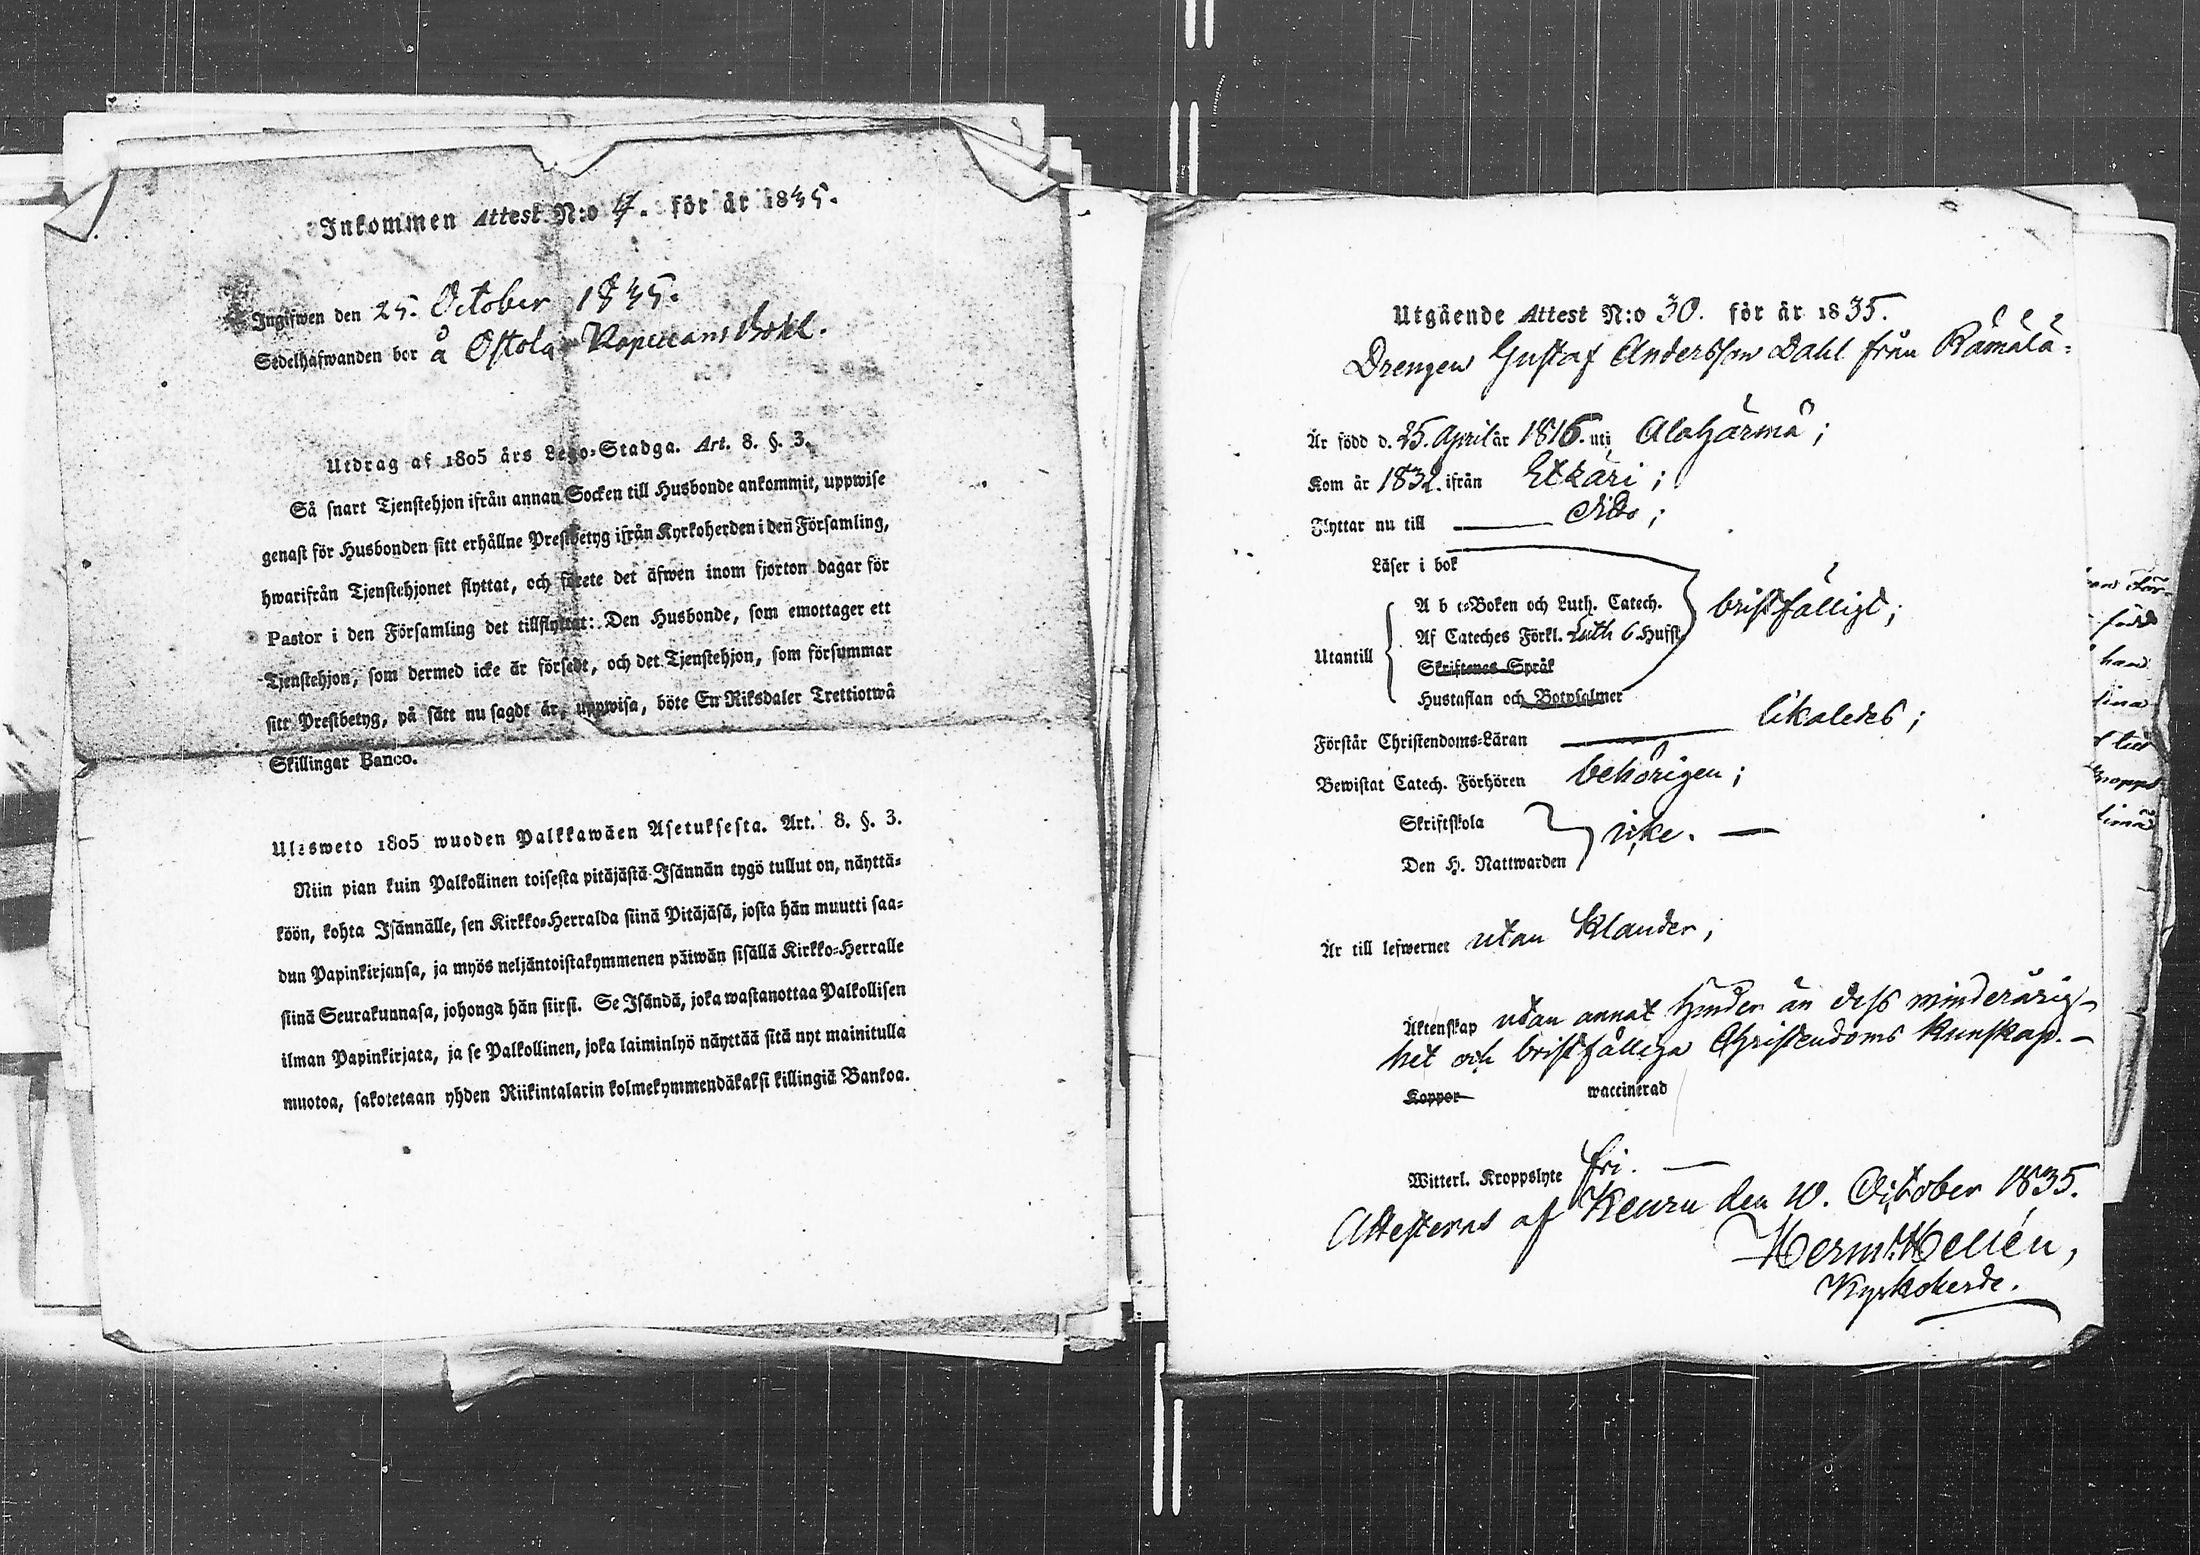 Inkommen Attest N:o 17. för år 1835.
Ingifwen den 25. October 1835.
Sedelhafwanden bor å Ostola Kapitans Bohl.
Utdrag af 1805 års Lego-Stadga. Art. 8. §. 3.
Så snart Tjenstehjon ifrån annan Socken till Husbonde ankommit, uppwise
genast för Husbonden sitt erhållne Prestbetyg ifrån Kyrkoherden i den Församling,
hwarifrån Tjenstehjonet flyttat, och förete det äfwen inom fjorton dagar för
Pastor i den Församling det tillflyttat: Den Husbonde, som emottager ett
Tjenstehjon, som dermed icke är försedt, och det Tjenstehjon, som försummar
sitt Prestbetyg, på sätt nu sagdt är, uppwisa, böte En Riksdaler Trettiotwå
Skillingar Banco.
Ulosweto 1805 wuoden Palkkawäen Asetuksesta. Art. 8. §. 3.
Niin pian kuin Palkollinen toisesta pitäjästä Isännän tygö tullut on, näyttä-
köön, kohta Isännälle, sen Kirkko-Herralda siinä Pitäjäsä, josta hän muutti saa-
dun Papinkirjansa, ja myös neljäntoistakymmenen päiwän sisällä Kirkko-Herralle
siinä Seurakunnasa, johonga hän siirsi. Se Isändä, joka wastanottaa Palkollisen
ilman Papinkirjata, ja se Palkollinen, joka laiminlyö näyttää sitä nyt mainitulla
muotoa, sakotetaan yhden Riikintalarin kolmekymmendäkaksi killingiä Bankoa.
Utgående Attest N:o 30. för år 1835.
Drengen Gustaf Andersson Dahl från Rämälä.
Är född d. 25. April år 1816. uti Alahärmä;
Kom år 1832. ifrån Etsäri;
Flyttar nu till dito;
Läser i bok
A b c-Boken och Luth. Catech.
bristfälligt;
Af Cateches Förkl. Luth 6 Hufst.
Utantill
Skriftenes Språk
Hustaflan och Botpsalmer
Förstår Christendoms-Läran likaledes;
Bewistat Catech. Förhören behörigen;
Skriftskola
icke.
Den H. Nattwarden
Är till lefwernet utan klander;
Äktenskap utan annat hinder än dess minderårig-
het och bristfälliga Christendoms kunskap.
Koppor waccinerad
Witterl. Kroppslyte fri.
Attesteras af Keuru den 10. October 1835.
Herm. Hellén,
Kyrkoherde.